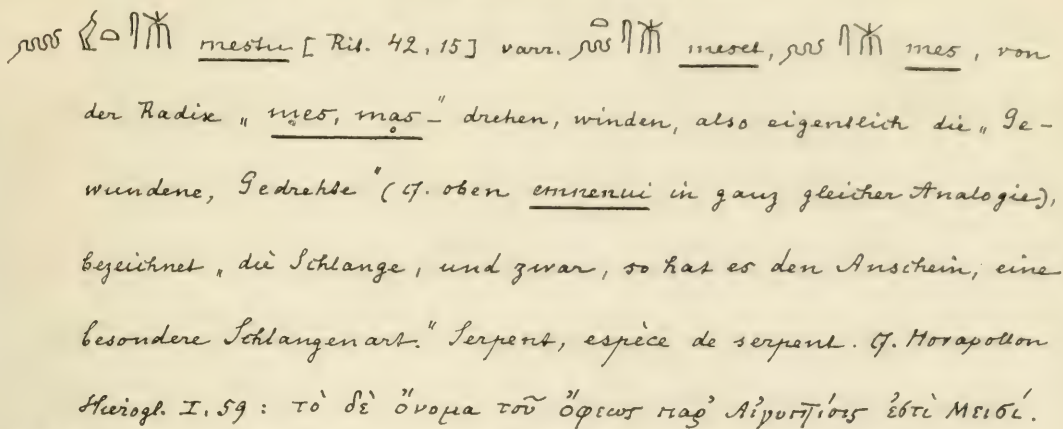 mestu [Rit. 42, 15] varr. meset, mes, von
der Radix „mes, mas-" drehen, winden, also eigentlich die „Ge-
wundene, Gedrehte" (cf. oben emnenui in ganz gleicher Analogie),
bezeichnet „die Schlange, und zwar, so hat es den Anschein, eine
besondere Schlangenart." Serpent, espèce de serpent. cf. Horapollon
Hierogl. I, 59 : τὸ δὲ ὄνομα τοῦ ὄφεως παρ' Αἰγυπτίοις ἐστὶ Μεισί.